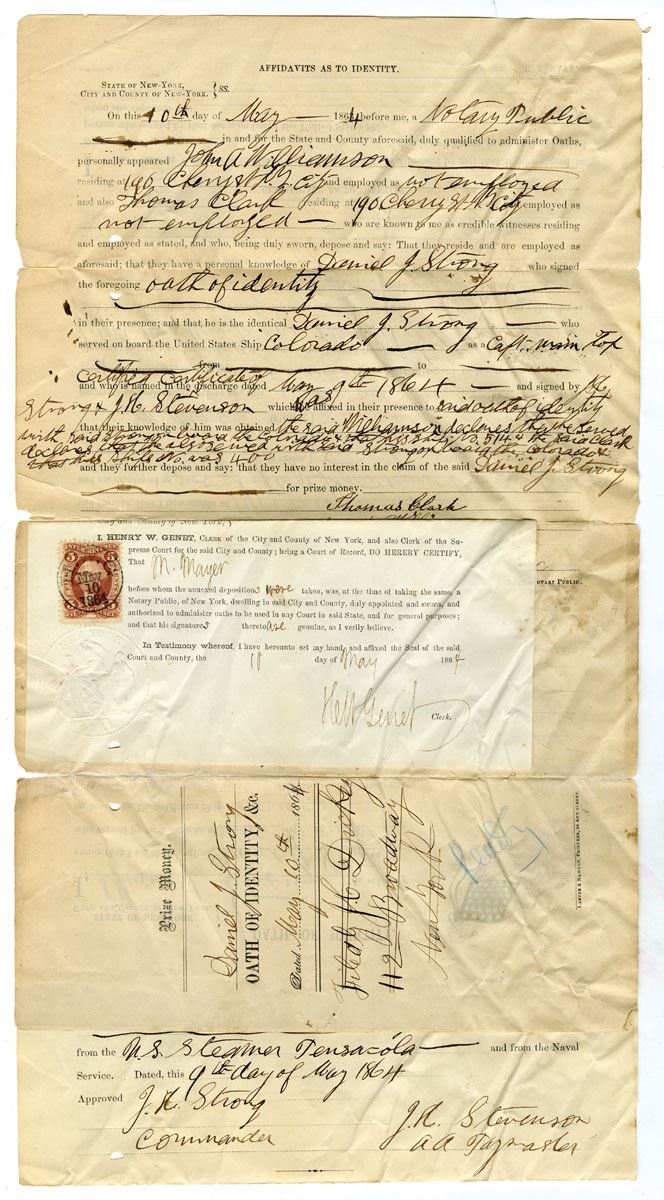 AFFIDAVITS AS TO IDENTITY.
STATE OF NEW-YORK,
CITY AND COUNTY OF NEW-YORK. } SS.
On this 10th day of May 1864 before me, a Notary Public
in and for the State and County aforesaid, duly qualified to administer Oaths,
personally appeared John A Williamson
residing at 190 Chery St N.Y. City and employed as not employed
and also Thomas Clark residing at 190 Chery St N.Y City employed as
not employed who are known to me as credible witnesses residing
and employed as stated, and who, being duly sworn, depose and say: That they reside and are employed as
aforesaid; that they have a personal knowledge of Daniel J. Strong who signed
the foregoing oath of identity
in their presence; and that he is the identical Daniel J. Strong who
served on board the United States Ship Colorado as a Capt. main Top
from to
Certified Certificate of
and who is named in the discharge dated May 9th 1864 and signed by J.K.
Strong & J.H. Stevenson which was affixed in their presence to said oath of identity
that their knowledge of him was obtained the said Williamson declares that he served
with said Strong on board the Colorado & that his ship's No. 514 & the said Clark
declares that he also served with said Strong on board the Colorado &
that his Ships No. was 400
and they further depose and say: that they have no interest in the claim of the said Daniel J. Strong
for prize money.
Thomas Clark
City and County of New York,
I, HENRY W. GENET, CLERK of the City and County of New York, and also Clerk of the Su-
preme Court for the said City and County; being a Court of Record, DO HEREBY CERTIFY,
That M. Mayer
before whom the annexed depositions were taken, was, at the time of taking the same, a
Notary Public, of New York, dwelling in said City and County, duly appointed and sworn, and
authorized to administer oaths to be used in any Court in said State, and for general purposes;
and that his signatures thereto are genuine, as I verily believe.
In Testimony whereof, I have hereunto set my hand, and affixed the Seal of the said
Court and County, the 10 day of May 1864
H W Genet Clerk.
5 5
MAY
10
1864
NOTARY PUBLIC.
Prize Money.
Daniel J. Strong
OATH OF IDENTITY, &c.
Dated May 10th 1864
112 Broadway
New York
LAMPER & NEWTON, PRINTERS, 58 ANN STREET.
from the U.S. Steamer Pensacola and from the Naval
Service. Dated, this 9th day of May 1864
Approved
J.K. Strong
Commander
J.H. Stevenson
AA Paymaster